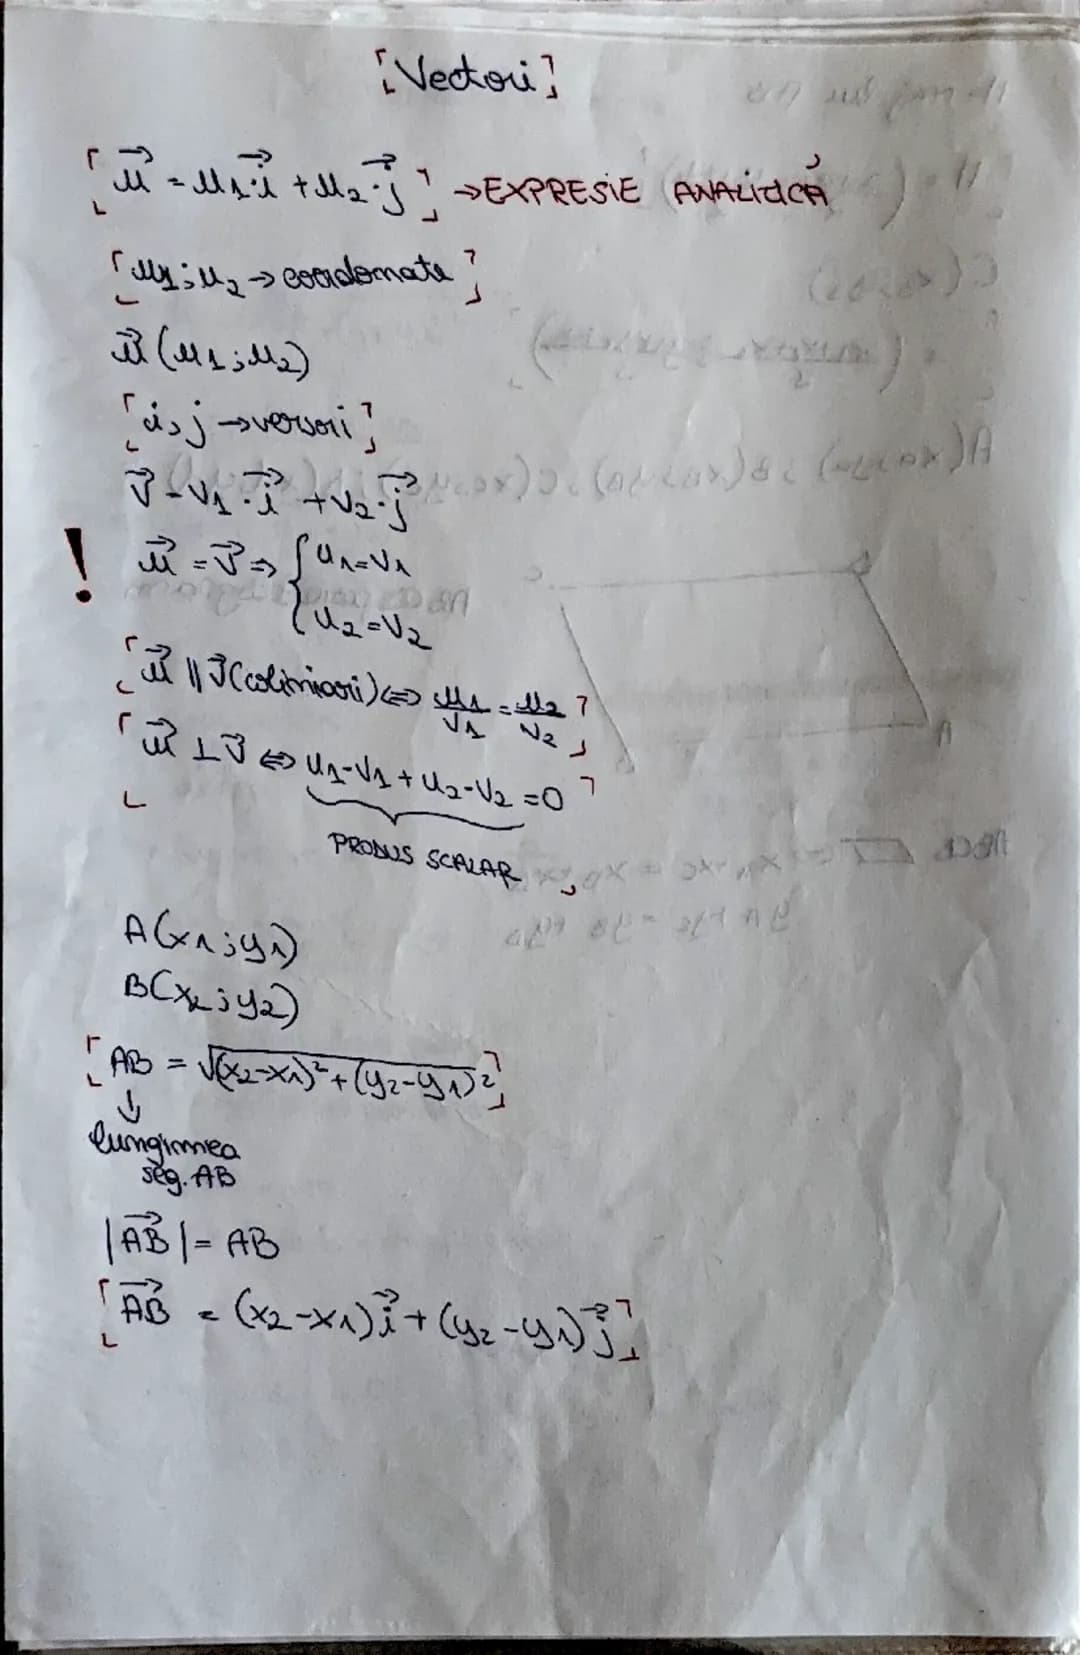 [Vectori]
[u⃗ = u₁·i⃗ + u₂·j⃗] → EXPRESIE ANALITICĂ
[u₁; u₂ → coordonate]
u⃗ (u₁; u₂)
[i, j → versori]
v⃗ = v₁·i⃗ + v₂·j⃗
! u⃗ = v⃗ ⇒ { u₁=v₁
u₂=v₂
[u⃗ || v⃗ (coliniari) ⇔ u₁/v₁ = u₂/v₂]
[u⃗ ⊥ v⃗ ⇔ u₁·v₁ + u₂·v₂ = 0]
PRODUS SCALAR
A(x₁; y₁)
B(x₂; y₂)
[AB = √(x₂-x₁)²+(y₂-y₁)²]
↓
lungimea
seg. AB
|AB⃗| = AB
[AB⃗ = (x₂-x₁)i⃗ + (y₂-y₁)j⃗]